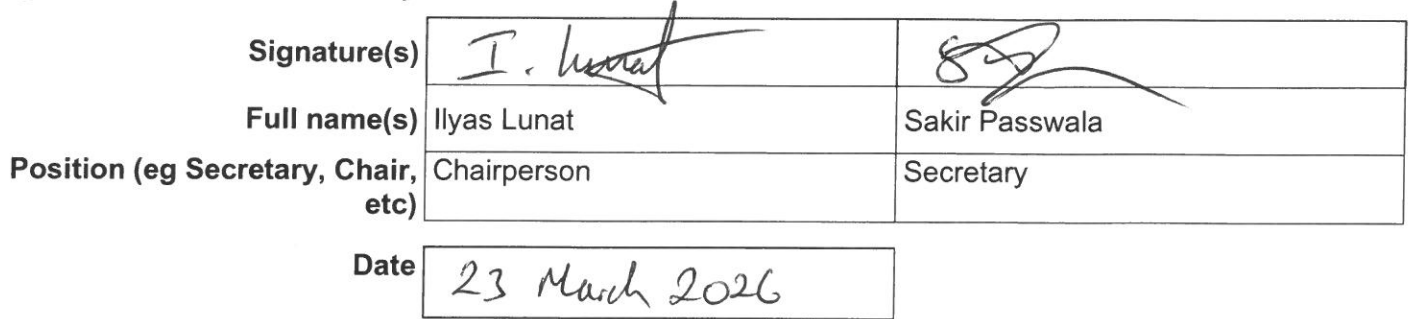 Signature(s) I. Lunat
Full name(s) Ilyas Lunat Sakir Passwala
Position (eg Secretary, Chair, Chairperson Secretary
etc)
Date 23 March 2026